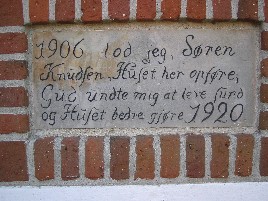 1906 lod jeg, Søren
Knudsen, Huset her opføre,
Gud undte mig at leve sund
og Huset bedre gjøre 1920